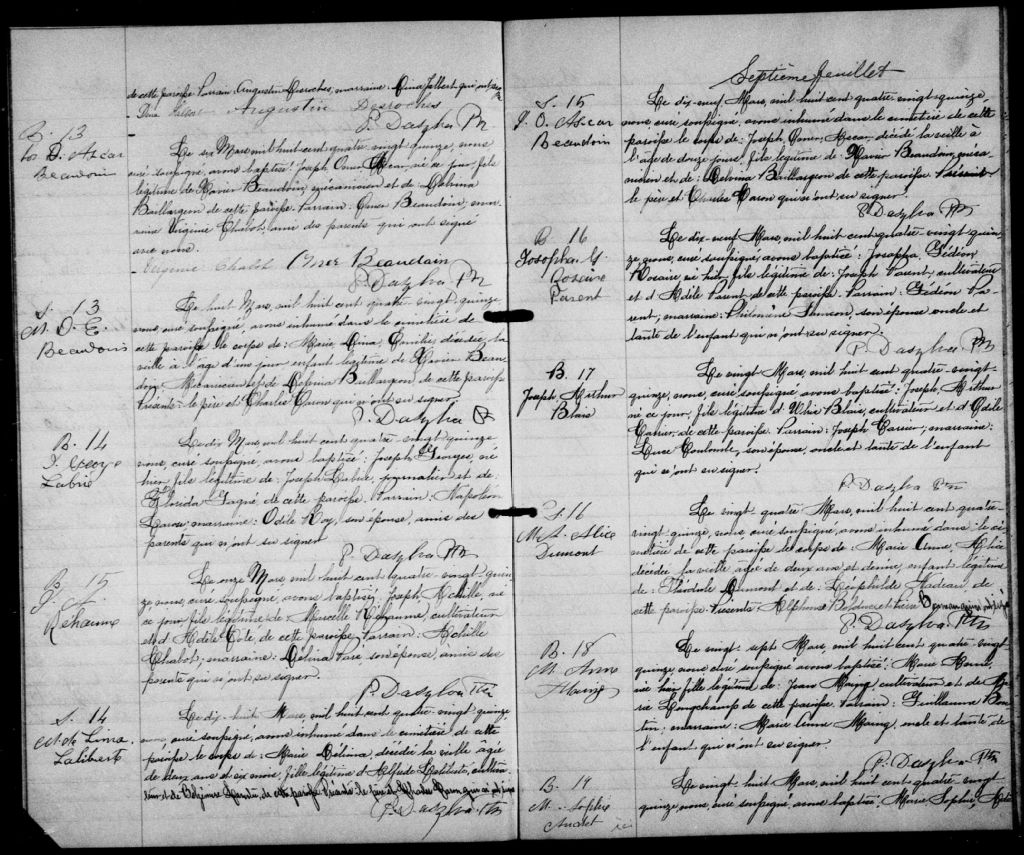 de cette paroisse. Parrain: Augustin Desroches, marraine: Dina qui ont signé
Augustin Desroches
P. Dasylva Ptr
B. 13
D. Ascar
Beaudoin
Le six Mars, mil huit cent quatre vingt quinze, nous
curé soussigné, avons baptisé: Joseph Omer né ce jour, fils
légitime de Xavier Beaudoin, mécanicien et de Delvina
Baillargeon de cette paroisse. Parrain: Omer Beaudoin, mar-
raine Virginie Chabot, amis des parents qui ont signé
avec nous.
Virginie Chabot Omer Beaudoin
P. Dasylva Ptr
S. 13
M. D. E.
Beaudoin
Le huit Mars, mil huit cent quatre vingt quinze,
nous, curé soussigné, avons inhumé dans le cimetière de
cette paroisse le corps de: Marie, Dina, décédée, la
veille à l'âge d'un jour, enfant légitime de Xavier Beau
doin Mécanicien et de Delvina Baillargeon, de cette paroisse
Présents: le père et Charles Caron qui n'ont su signer.
P. Dasylva Ptr
B. 14
J. George
Labrie
Le dix Mars, mil huit cent quatre vingt quinze
nous, curé soussigné, avons baptisé: Joseph Georges, né
hier, fils légitime de: Joseph Labrie, journalier et de:
Florida Gagné de cette paroisse. Parrain: Napoléon
marraine: Odile Roy, son épouse, amis des
parents qui n'ont su signer.
P. Dasylva Ptr
B. 15
J.
Rehaume
Le onze Mars, mil huit cent quatre-vingt-quin
ze, nous, curé soussigné, avons baptisé, Joseph Achille, né
ce jour, fils légitime de Marcelle Rehaume, cultivateur
et d'Adèle Coté de cette paroisse. Parrain: Achille
Chabot; marraine: Délina son épouse, amis des
parents qui n'ont su signer.
P. Dasylva Ptr
S. 14
Lina
Laliberté
Le dix-huit Mars, mil huit cent quatre vingt quinze,
nous curé soussigné, avons inhumé dans le cimetière de cette
paroisse le corps de: Marie Délina, décédée la veille agée
de deux ans et six mois, fille légitime d'Alfred Laliberté, cultiva-
teur et de de cette paroisse Présents: le père et Charles Caron qui n'ont su signer
P. Dasylva Ptr
Septième feuillet
S. 15
J. O. Ascar
Beaudoin
Le dix-neuf Mars, mil huit cent quatre vingt-quinze,
nous curé soussigné, avons inhumé dans le cimetière de cette
paroisse le corps de: Joseph, Omer, Ascar, décédé la veille à
l'âge de douze jours, fils légitime de Xavier Beaudoin, méca-
nicien et de: Delvina Baillargeon de cette paroisse. Présents
le père et Charles Caron qui n'ont su signer.
P. Dasylva Ptr
B 16
Josepha G.
Rosaire
Parent
Le dix-neuf Mars, mil huit cent quatre-vingt quin-
ze, nous, curé soussigné, avons baptisé: Josepha, Gédéon
Rosaire né hier, fils légitime de: Joseph Parent, cultivateur
et d'Adèle Parent de cette paroisse. Parrain: Gédéon Pa-
rent, marraine: Philomène son épouse oncle et
tante de l'enfant qui n'ont su signer.
P. Dasylva Ptr
B. 17
Joseph, Arthur
Blais
Le vingt Mars, mil huit cent quatre-vingt-
quinze, nous, curé, soussigné avons baptisé: Joseph, Arthur
né ce jour, fils légitime d' Blais, cultivateur et d'Odile
Carrier, de cette paroisse. Parrain: Joseph Carrier, marraine:
Luce Coulombe, son épouse, oncle et tante de l'enfant
qui n'ont su signer.
P. Dasylva Ptr
S. 16
M. A. Alice
Dumont
Le vingt-quatre Mars, mil huit cent quatre-
vingt-quinze, nous curé soussigné, avons inhumé dans le ci-
metière de cette paroisse le corps de: Marie Anne, Alice
décédée la veille agée de deux ans et demie, enfant légitime
de: Dumont et de: Nadeau de
cette paroisse. Présents Alphonse Bolduc et Pierre qui n'ont su signé
P. Dasylva Ptr
B. 18
M. Anna
Maing
Le vingt-sept Mars, mil huit cent quatre vingt
quinze nous curé soussigné avons baptisé: Marie
née hier, fille légitime de: Jean Maing, cultivateur et de Ma-
rie Longchamp de cette paroisse. Parrain: Guillaume
marraine: Marie Anne Maing, oncle et tante de
l'enfant qui n'ont su signer
P. Dasylva Ptr
B. 19
M. Sophie
Audet
Le vingt-huit Mars, mil huit cent quatre vingt
quinze, nous, curé soussigné, avons baptisé, Marie Sophie,